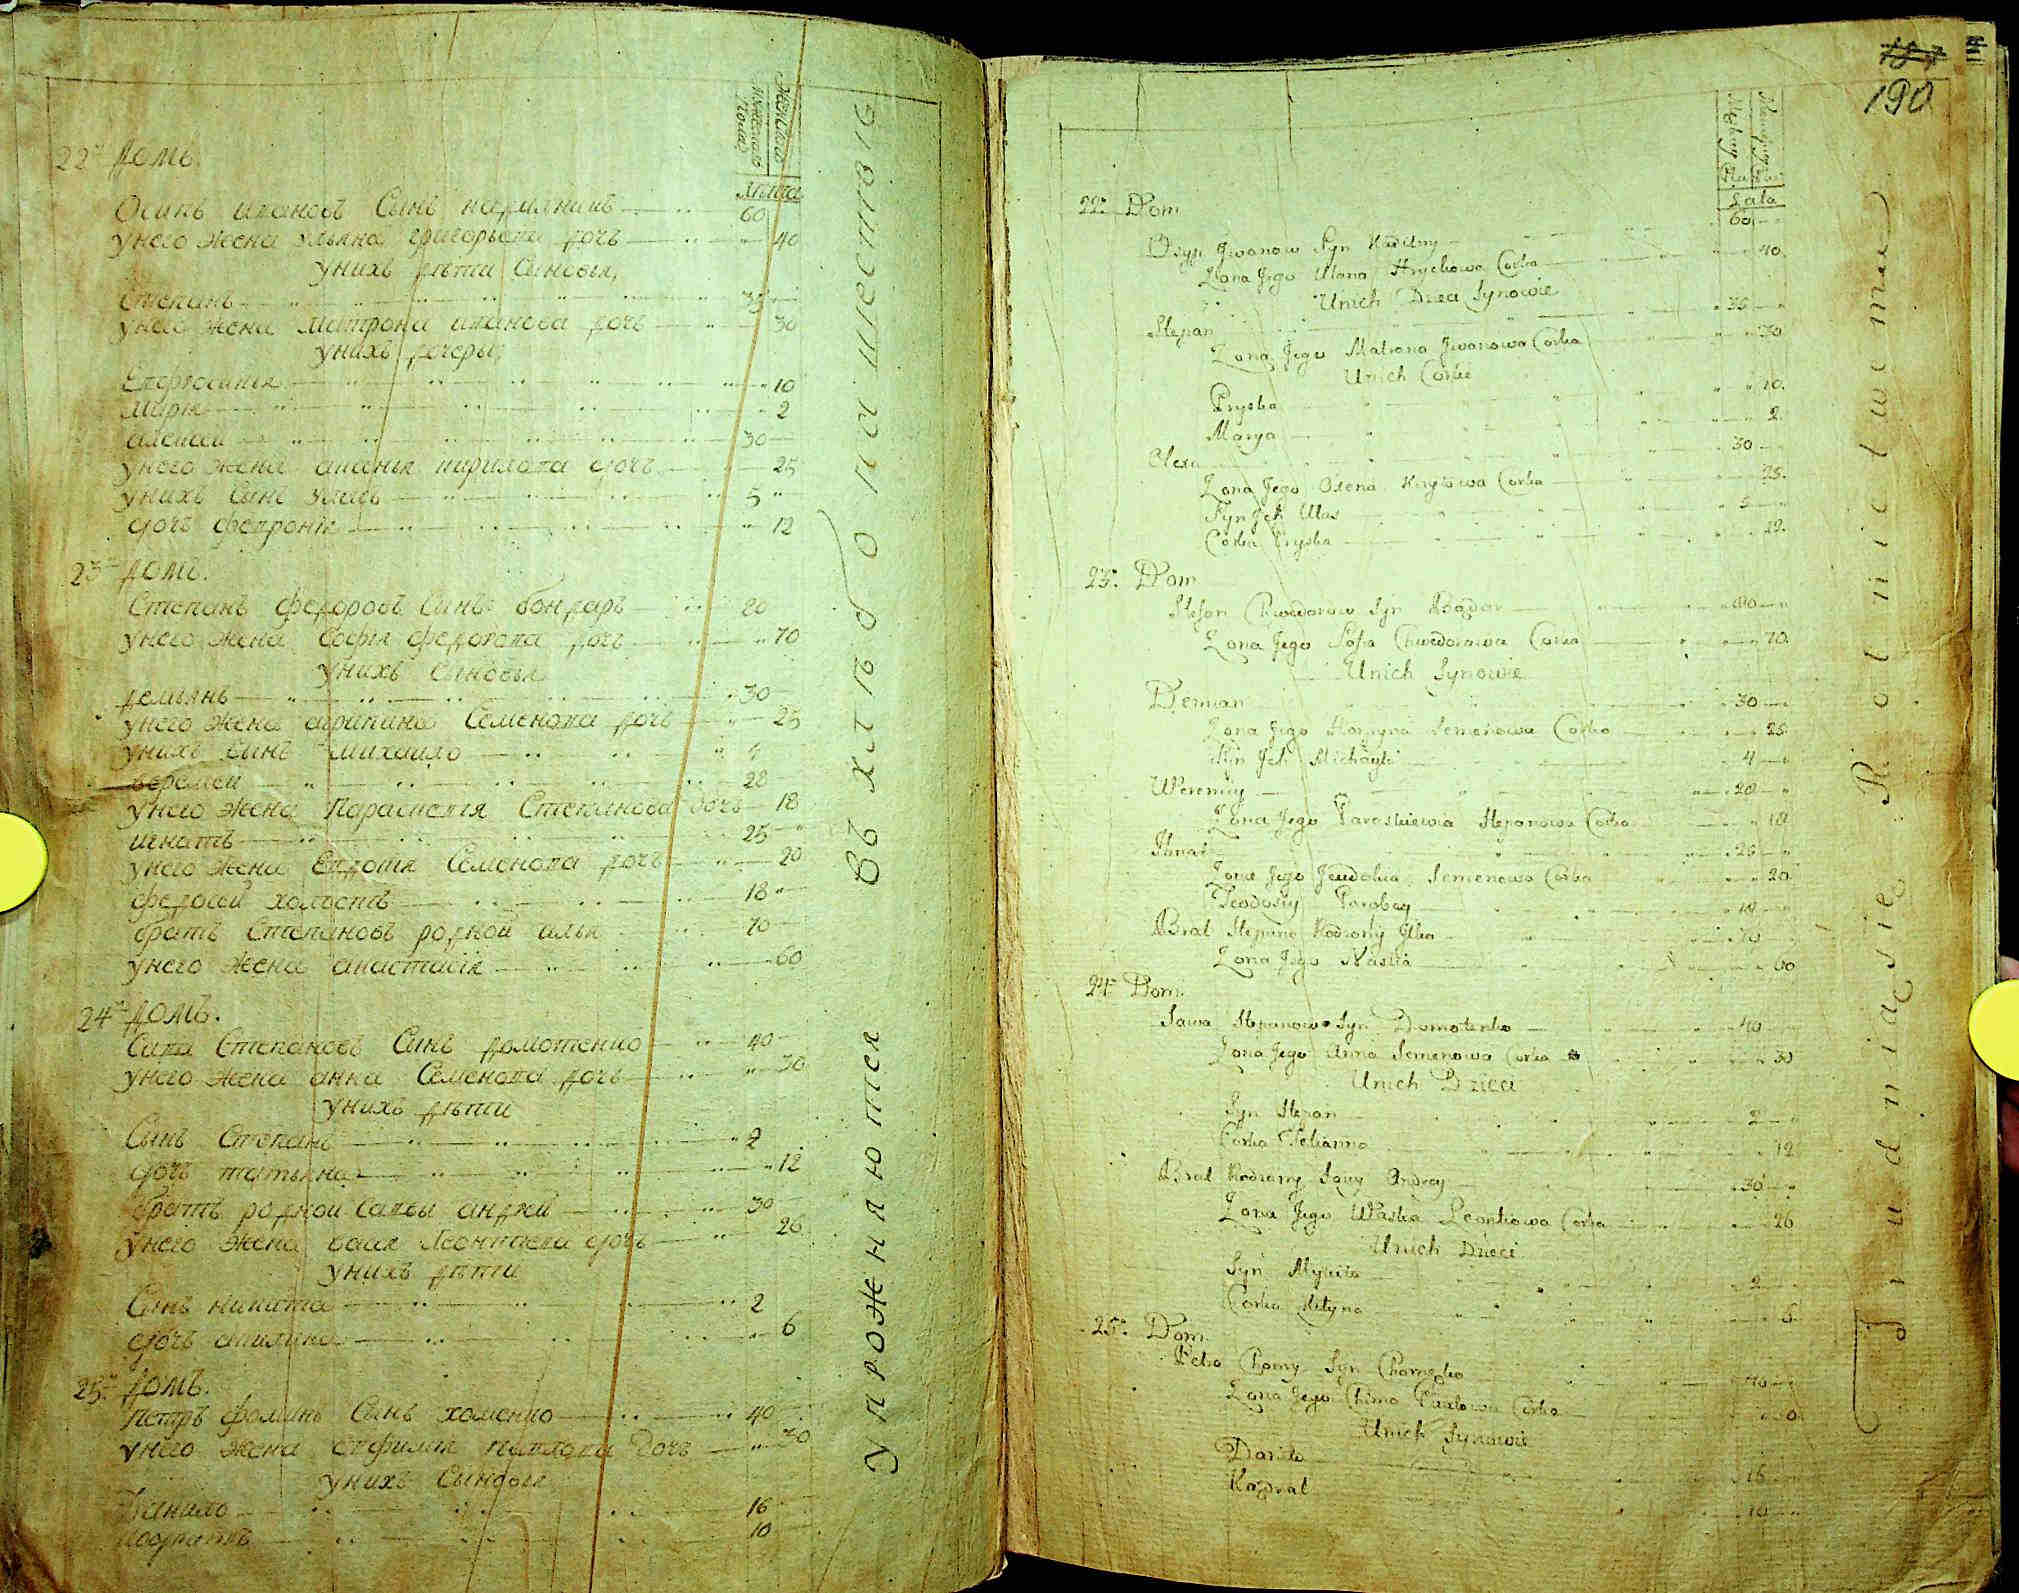 Женска
Мужеска
пола
Лѣта
22й Домъ.
Осипъ ивановъ Сынъ 60
унего жена ульяна григорьева дочь 40
унихъ дѣти Сыновья,
Степанъ 35
унего жена матрона иванова дочь 30
унихъ дочеры,
10
марія 2
алексей 30
унего жена кирилова дочь 25
унихъ Сынъ уласъ 5
дочь февронія 12
23й домъ.
Степанъ федоровъ Сынъ бондарь 20
унего жена Софія федорова дочь 70
унихъ Сыновья
демьянъ 30
унего жена агрипина Семенова дочь 25
унихъ сынъ михайло 4
веремей 28
унего жена Параскевія Степанова дочь 18
игнатъ 25
унего жена Евдотія Семенова дочь 20
федосей холостъ 18
братъ Степановъ родной илья 70
унего жена анастасія 60
24й домъ.
Сава Степановъ Сынъ домотенко 40
унего жена анна Семенова дочь 30
унихъ дѣти
Сынъ Степанъ 2
дочь татьяна 12
братъ родной Савы андрей 30
унего жена васса Леонтіева дочь 26
унихъ дѣти
Сынъ никита 2
дочь 6
25й домъ.
Петръ фоминъ Сынъ хоменко 40
унего жена павлова дочь 30
унихъ Сыновья
Данило 16
Кодратъ 10
упроженяются въ хлѣбопашествѣ
190
Lata
22. Dom
Osyp Jwanow Syn 60
Zona Jego Ulana Hryckowa Corka 40
Unich Dzieci Synowie
Stepan 35
Zona Jego Matrona Jwanowa Corka 30
Unich Corki
Pryska 10
Marya 2
Olexa 30
Zona Jego Oxena Kiryłowa Corka 25
Syn Jch Ulas 5
Corka Pryska 12
23. Dom
Stefan Chwedorow Syn 80
Zona Jego Sofia Chwedorowa Corka 70
Unich Synowie
Demian 30
Zona Jego Horpyna Semenowa Corka 25
Syn Jch Michayło 4
Weremiy 28
Zona Jego Paraskiewia Stepanowa Corka 18
Jhnat 25
Zona Jego Jewdokia Semenowa Corka 20
Teodosiy Parobcy 18
Brat Stepana Rodzony Jlko 70
Zona Jego Nastia 60
24. Dom.
Sawa Stepanow Syn Domotenko 40
Zona Jego Anna Semenowa Corka 30
Unich Dzieci
Syn Stepan 2
Corka Tetianna 12
Brat Rodzony Sawy Andrey 30
Zona Jego Waska Leontiowa Corka 26
Unich Dzieci
Syn Mykita 2
Corka 6
25. Dom
Petro Chomy Syn Chomenko 40
Zona Jego Chima Pawłowa Corka 30
Unich Synowie
Daniło 16
Kondrat 10
Trudnią się Rolnictwem